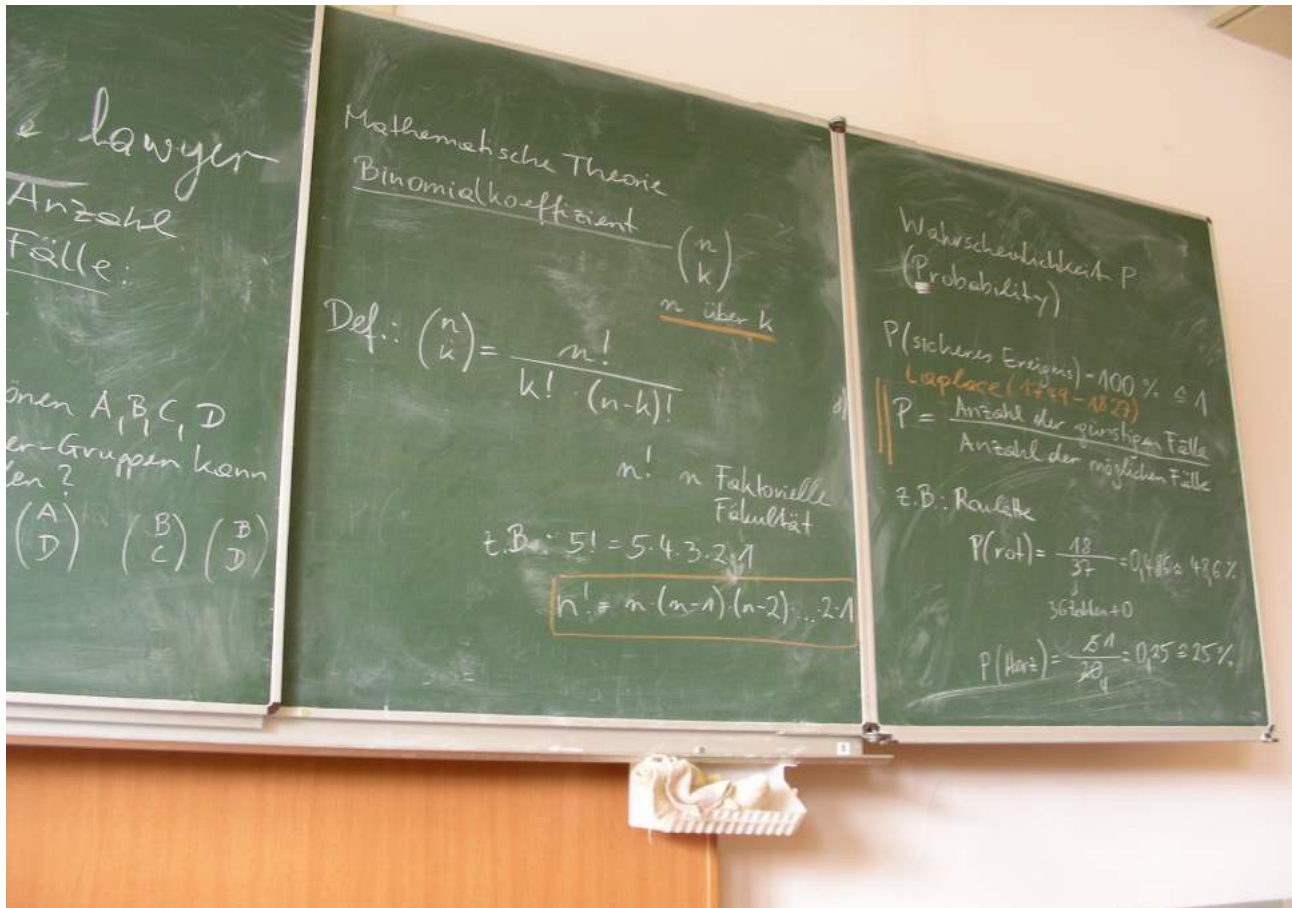 e lawyer
Anzahl
Fälle:
önen A, B, C, D
er-Gruppen kann
en?
(A D) (B C) (B D)
Mathematische Theorie
Binomialkoeffizient (n k)
n über k
Def.: (n k) = n! / k! · (n-k)!
n! n Faktorielle
Fakultät
z.B.: 5! = 5·4·3·2·1
n! = n·(n-1)·(n-2)·...·2·1
Wahrscheinlichkeit P
(Probability)
P(sicheres Ereignis) = 100% ≙ 1
Laplace (1749-1827)
P = Anzahl der günstigen Fälle / Anzahl der möglichen Fälle
z.B.: Roulette
P(rot) = 18/37 = 0,486 ≙ 48,6%
36 Zahlen + 0
P(Herz) = 5 1 / 20 4 = 0,25 ≙ 25%